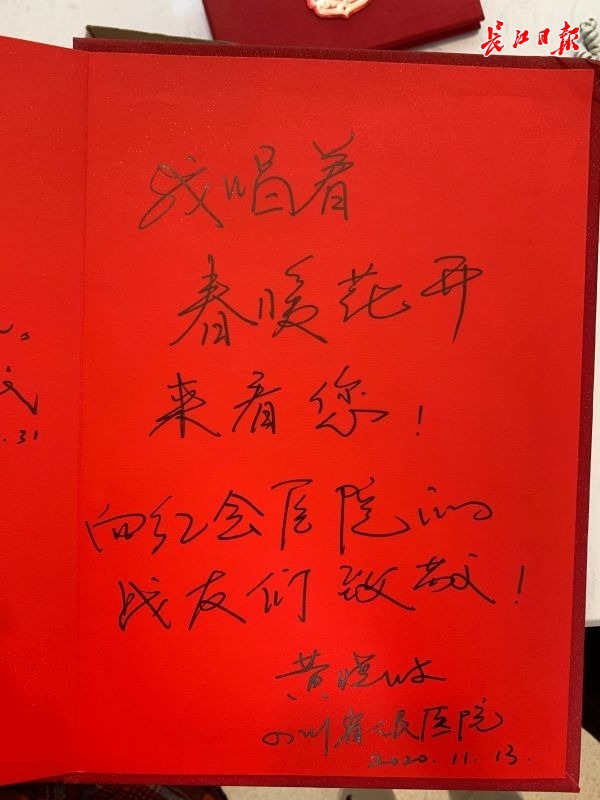 长江日报
我唱着
春暖花开
来看您!
向红会医院的
战友们致敬!
黄晓波
四川省人民医院
2020.11.13.
.31